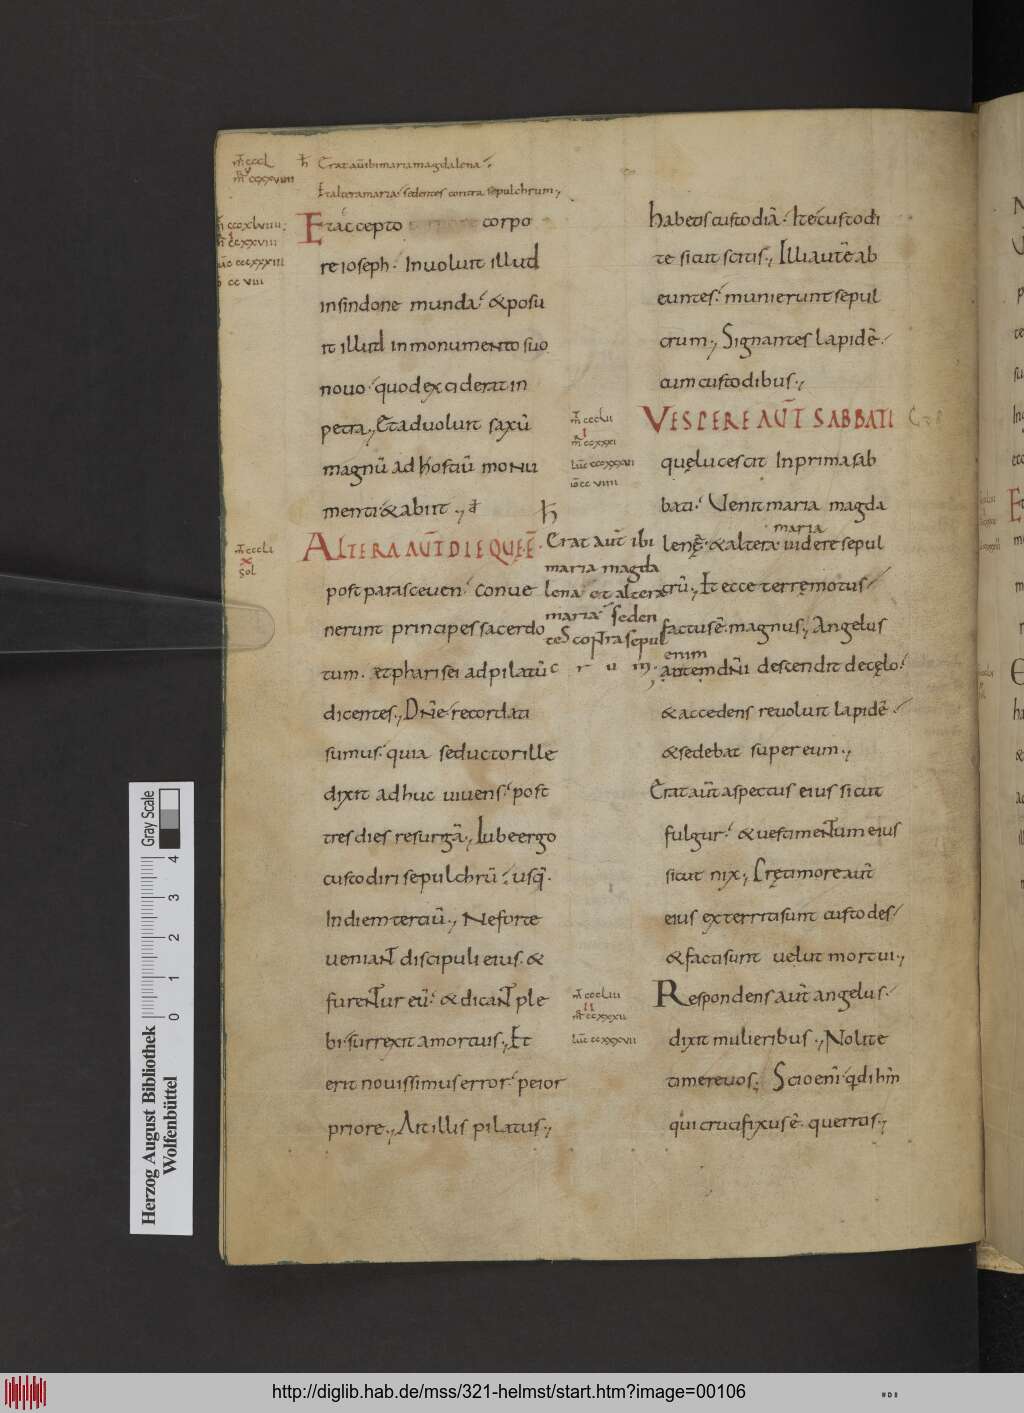 m̄ cccL
m̄r ccxxxviiii
ħ Erat aūt ibi maria magdalena·
Et altera maria· sedentes contra sepulchrum·,
m̄ cccxlviiii·
m̄r ccxxviii
luc̄ cccxxxiii
io ccviii
Et accepto corpo
re ioseph· Inuoluit illud
insindone munda· & posu
it illud in monumento suo
nouo· quod exciderat in
petra·, Et aduoluit saxū
magnū ad hostiū monu
menti· & abiit·,
m̄ cccLi
x
sol
ALTERA AUT̄ DIE QUE Ē·
post parasceuen· conue
nerunt principes sacerdo
tum· et pharisei ad pilatū
dicentes·, Dn̄e recordati
sumus· quia seductor ille
dixit adhuc uiuens· post
tres dies resurgā·, Iube ergo
custodiri sepulchrū· usq·
In diem tertiū·, Ne forte
ueniant discipuli eius· &
furentur eū· & dicant ple
bi· surrexit amortuis·, Et
erit nouissimus error· peior
priore·, Ait illis pilatus·,
ħ
Erat aut̄ ibi
maria magda
lena et altera
maria· seden
tes contra sepul
c r u m·,
habetis custodiā· Ite custodi
te sicut scitis·, Illi aut̄ ab
euntes· munierunt sepul
crum·, Signantes lapidē·
cum custodibus·,
m̄ cccLii
m̄r ccxxxi
luc̄ ccxxxvi
io ccviiii
VESPERE AUT̄ SABBATI
quę lucescit In prima sab
bati· Uenit maria magda
maria
lenę· & altera· uidere sepul
crū·, Et ecce terrę motus
factus ē· magnus·, Angelus
enim
autem dn̄i descendit de cęlo·
& accedens reuoluit lapidē·
& sedebat super eum·,
Erat aut̄ aspectus eius sicut
fulgur· & uestimentum eius
sicut nix·, Prę timore aut̄
eius exterriti sunt custodes·
& facti sunt uelut mortui·,
m̄ cccLiii
ii
m̄r ccxxxii
luc̄ ccxxxvii
Respondens aut̄ angelus·
dixit mulieribus·, Nolite
timere uos·, Scio enī· qd ihm̄
qui crucifixus ē· queritis·,
Herzog August Bibliothek
Wolfenbüttel
Gray Scale
0 1 2 3 4
http://diglib.hab.de/mss/321-helmst/start.htm?image=00106